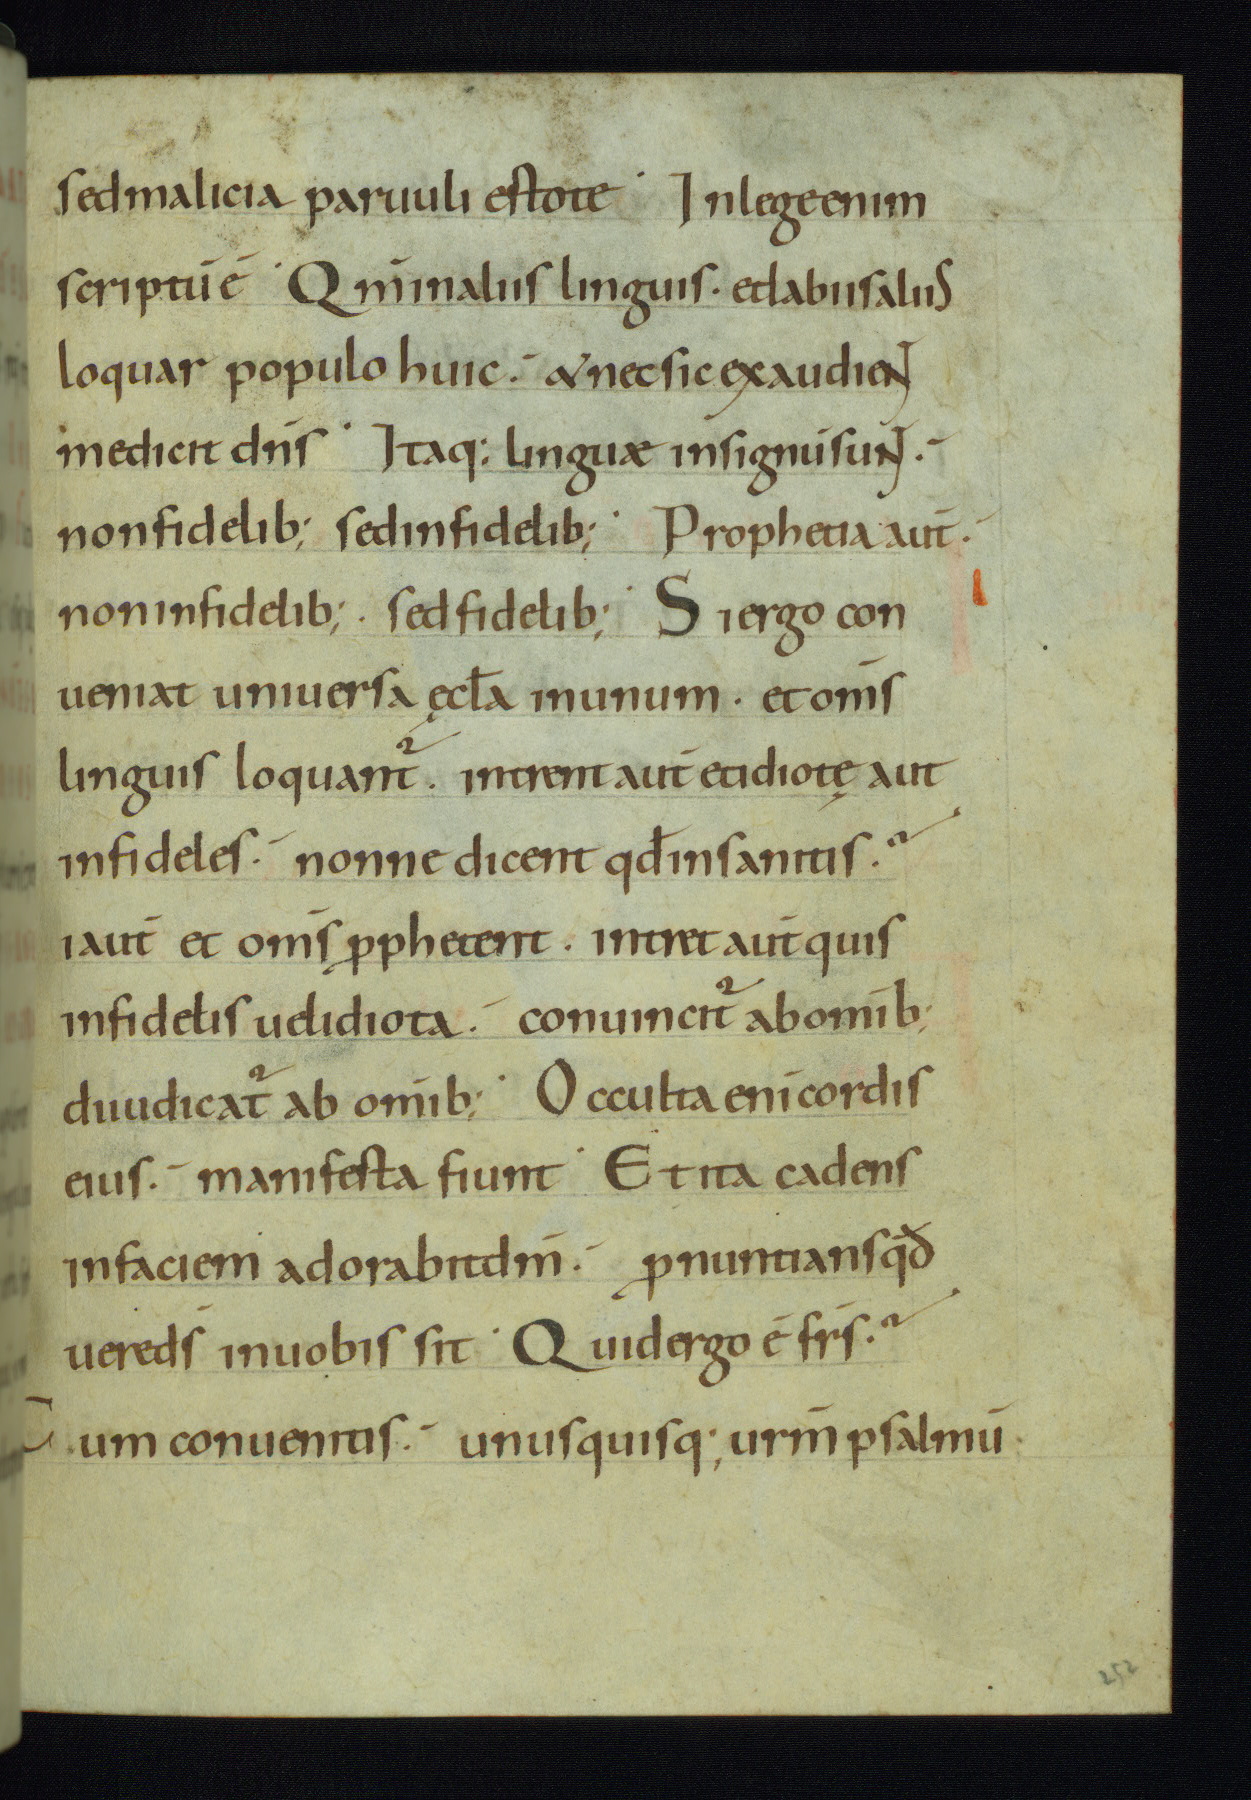 sedmalicia paruuli estote· Inlegeenim
scriptū ē· Qm̄inaliis linguis· etlabiisaliis
loquar populo huic·- &necsic exaudient
medicit dn̄s· Itaq: linguæ insignūsunt·-
nonfidelib; sedinfidelib;· Prophetia aut̄·-
noninfidelib;· sedfidelib;· Siergo con
ueniat uniuersa ęcl̄a inunum· et om̄s
linguis loquant᷑· intrent aut̄ etidiotę aut
infideles·- nonne dicent qd̄insanitis·~
iaut̄ et om̄s ꝓphetent· intret aut̄quis
infidelis uelidiota·- conuincit᷑ abom̄ib;
diiudicat᷑ ab om̄ib;· Occulta enī cordis
eius·- manifesta fiunt· Et ita cadens
infaciem adorabitdm̄·- ꝓnuntiansqd̄
uereds̄ inuobis sit· Quidergo ē frs̄·~
Cum conuenitis·- unusquisq; urm̄ psalmū·
252